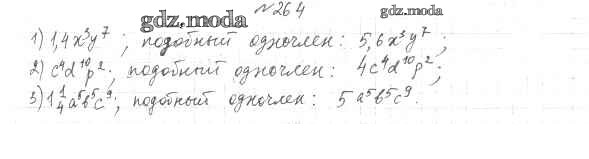 №264
gdz.moda gdz.moda
1) 1,4x³y⁷; подобный одночлен: 5,6x³y⁷;
2) c⁴d¹⁰p²; подобный одночлен: 4c⁴d¹⁰p²;
3) 1 1/4 a⁵b⁵c⁹; подобный одночлен: 5a⁵b⁵c⁹.